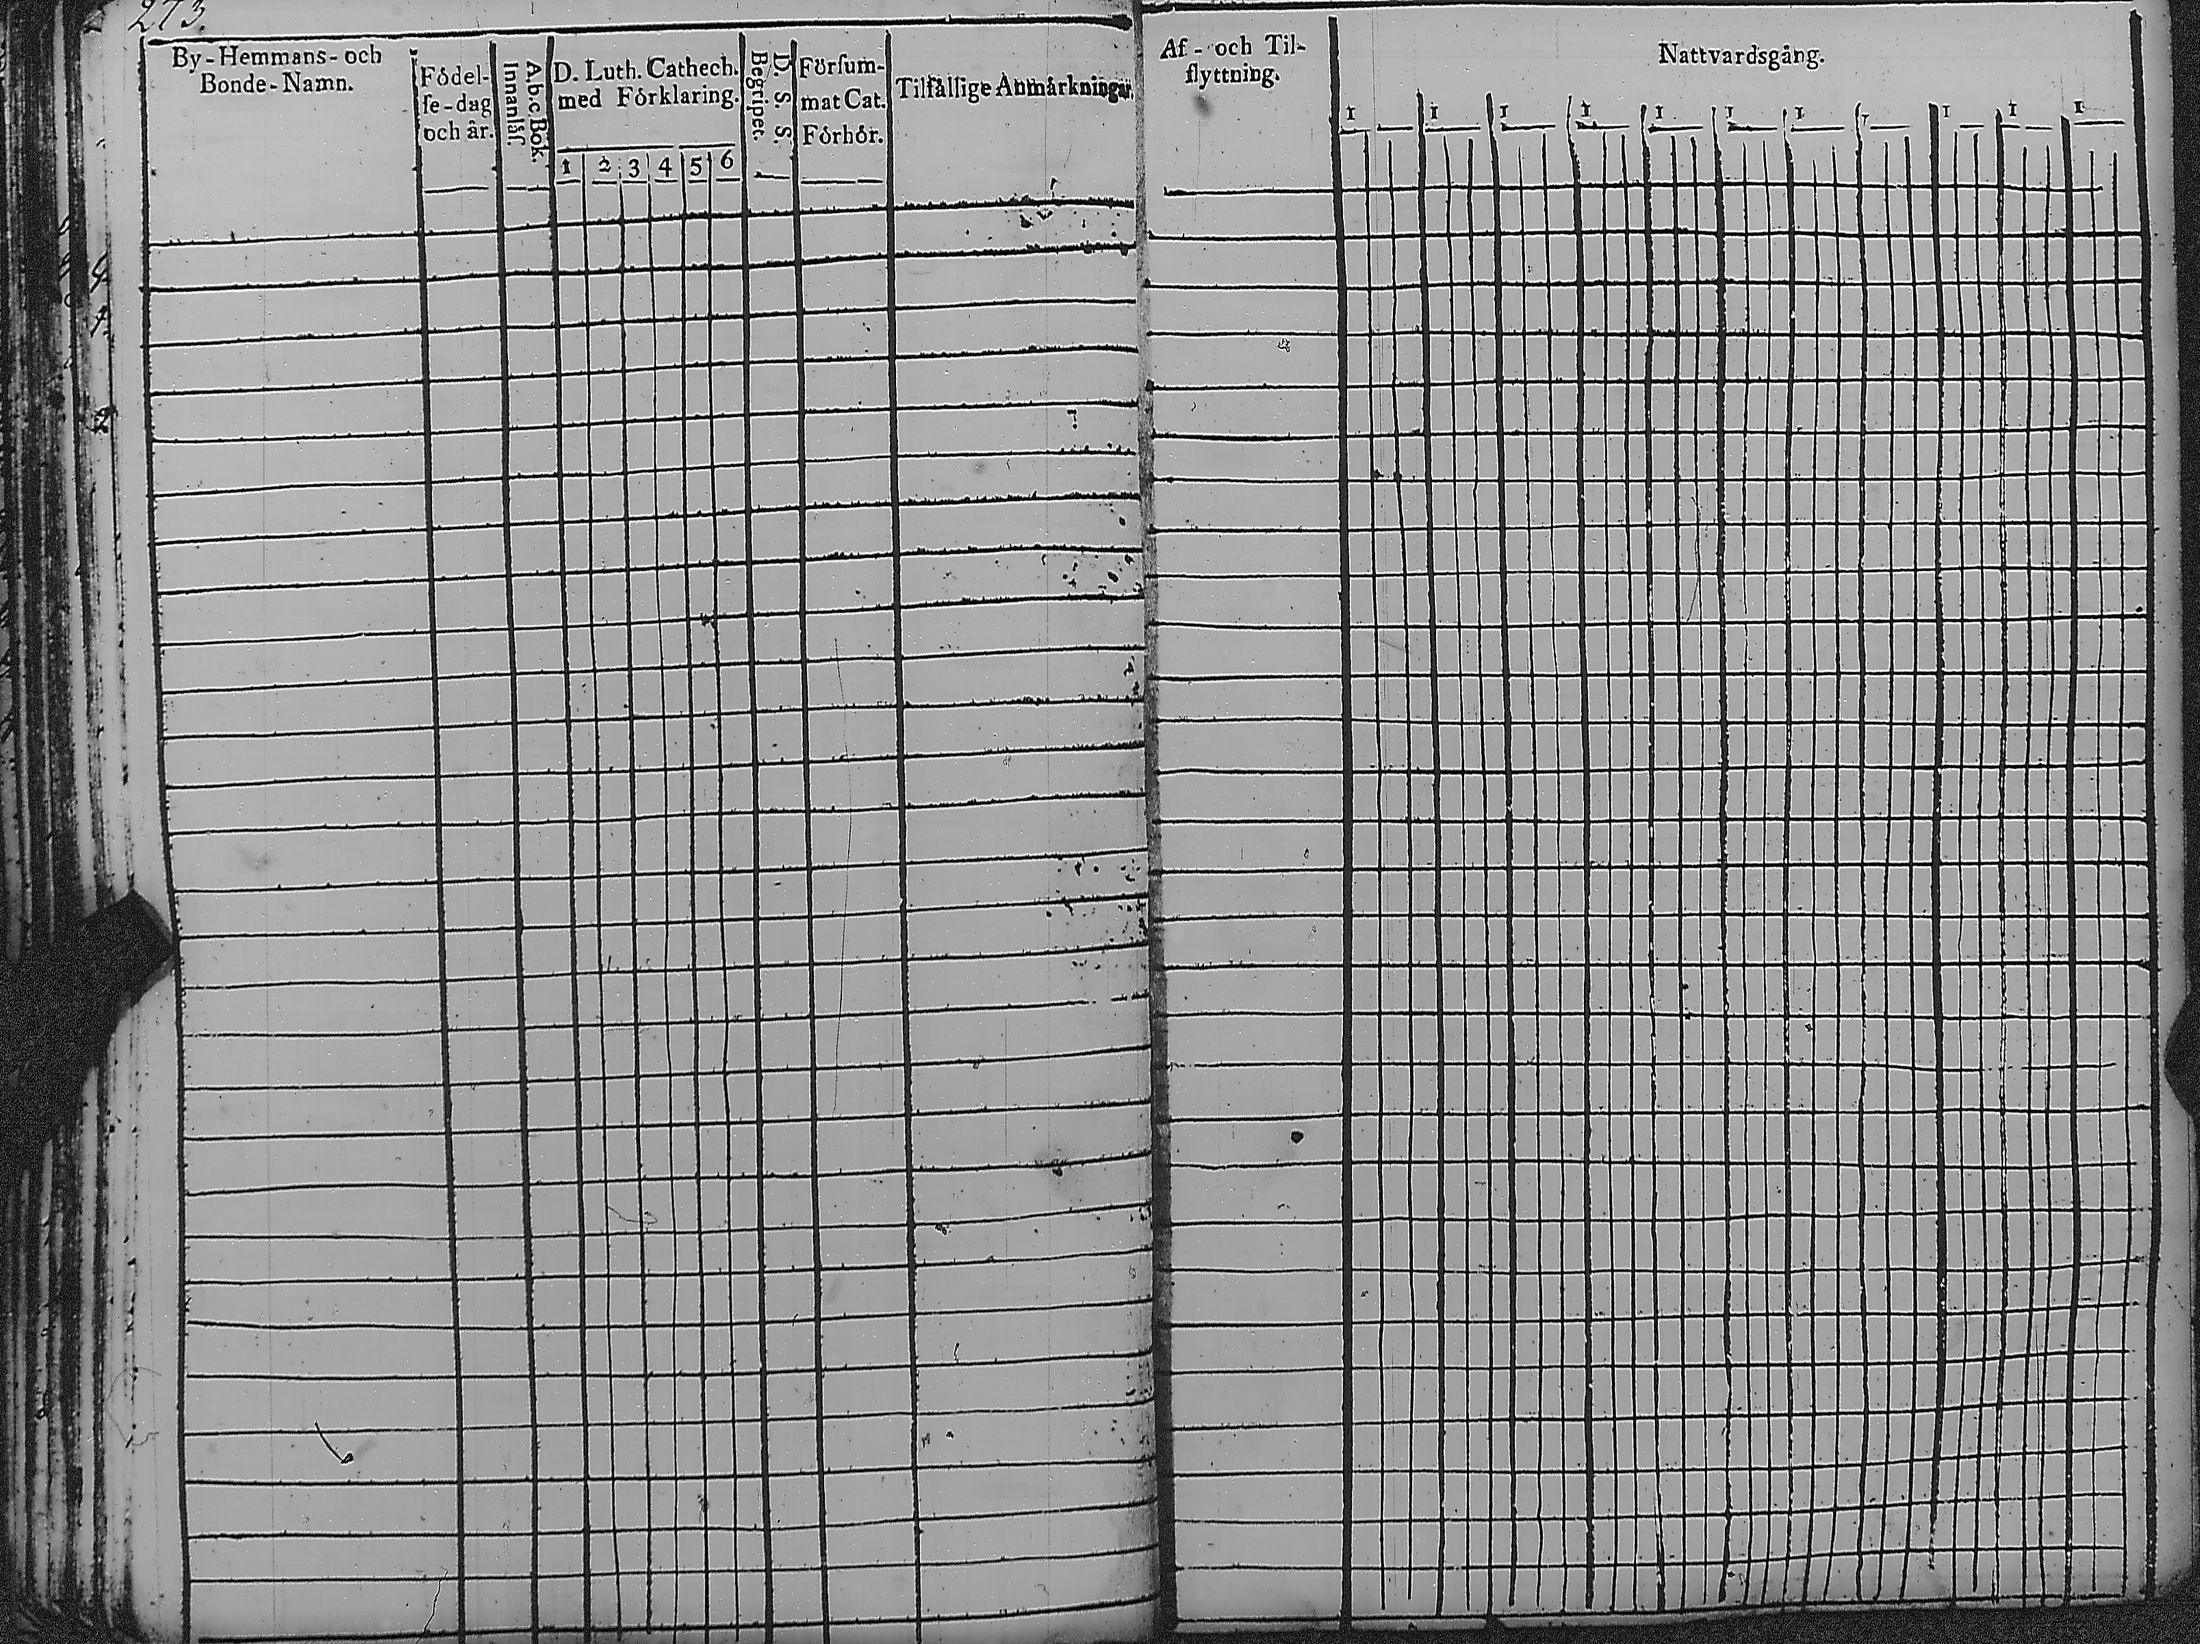 273.
By-Hemmans- och
Bonde-Namn.
Födel-
se-dag
och år.
Ab.c.Bok.
Innanläs.
D. Luth. Cathech.
med Förklaring.
1 2 3 4 5 6
D. S. S.
Begripet.
Försum-
mat Cat.
Förhör.
Tilfällige Anmärkningar.
Af- och Til-
flyttning.
Nattvardsgång.
1 1 1 1 1 1 1 1 1 1 1